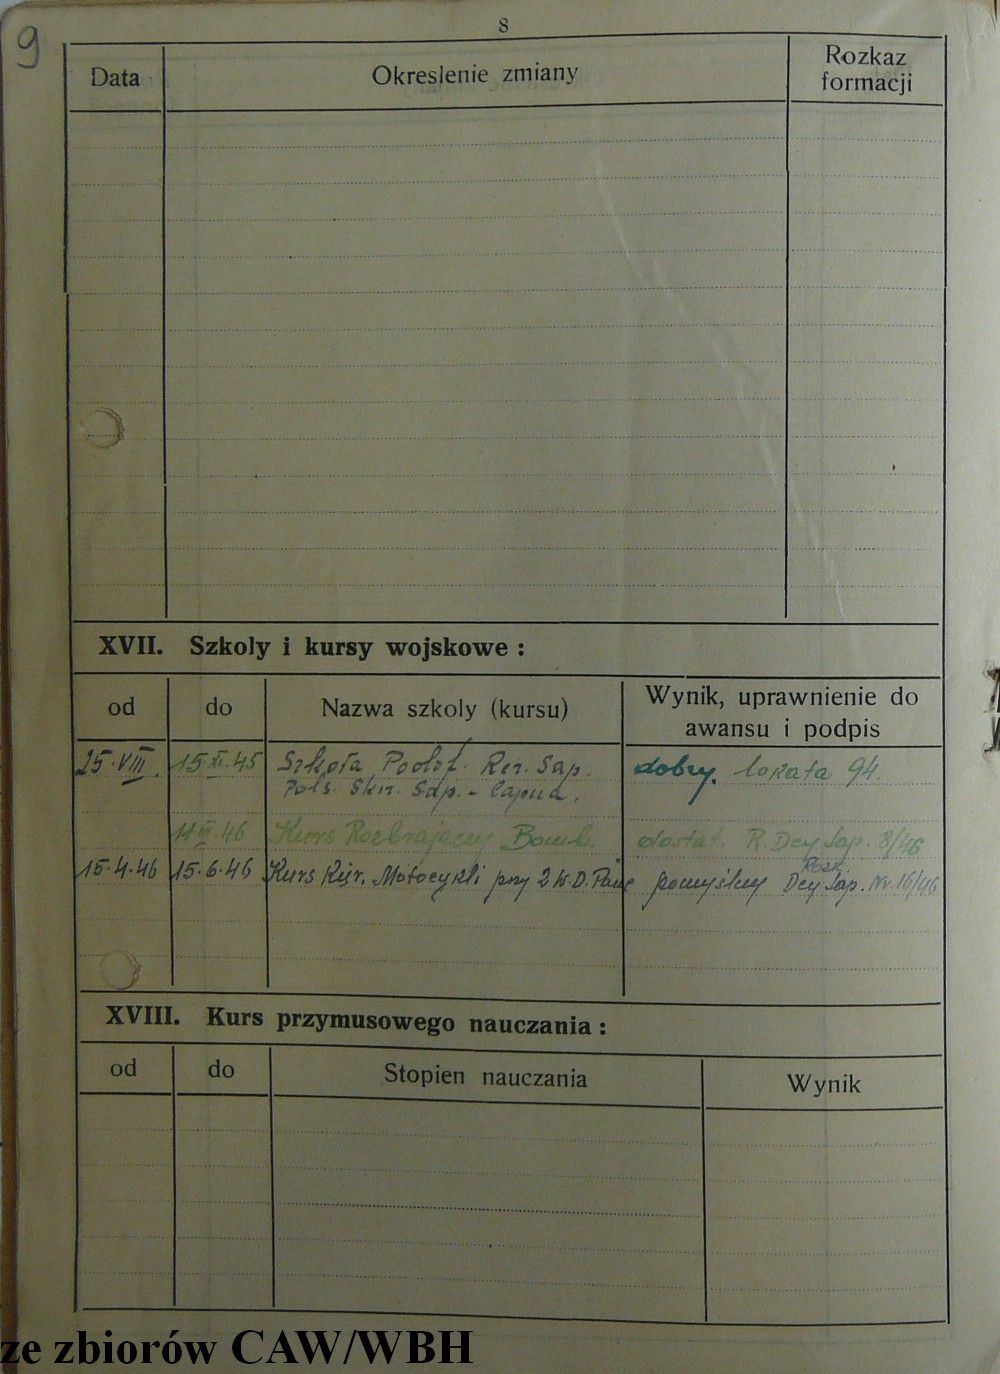 9
8
Data
Okreslenie zmiany
Rozkaz
formacji
XVII. Szkoly i kursy wojskowe :
od
do
Nazwa szkoly (kursu)
Wynik, uprawnienie do
awansu i podpis
25.VIII. 15.XI.45 Szkoła Podof. Rez. Sap. dobry. lokata 94.
Sap. - Capua.
46 Kurs Rozbrajający Bomb. dostat. R. Dcy Sap. 8/46
Rozk.
15.4.46 15.6.46 Kurs Kier. Motocykli przy 2 W.D.Panc pomyślny Dcy Sap. Nr. 16/46
XVIII. Kurs przymusowego nauczania :
od
do
Stopien nauczania
Wynik
ze zbiorów CAW/WBH